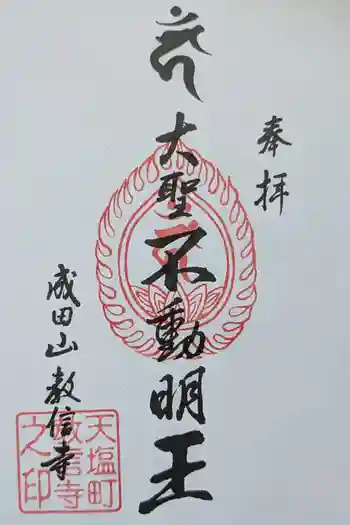 奉拝
大聖不動明王
成田山 教信寺
天塩町
教信寺
之印